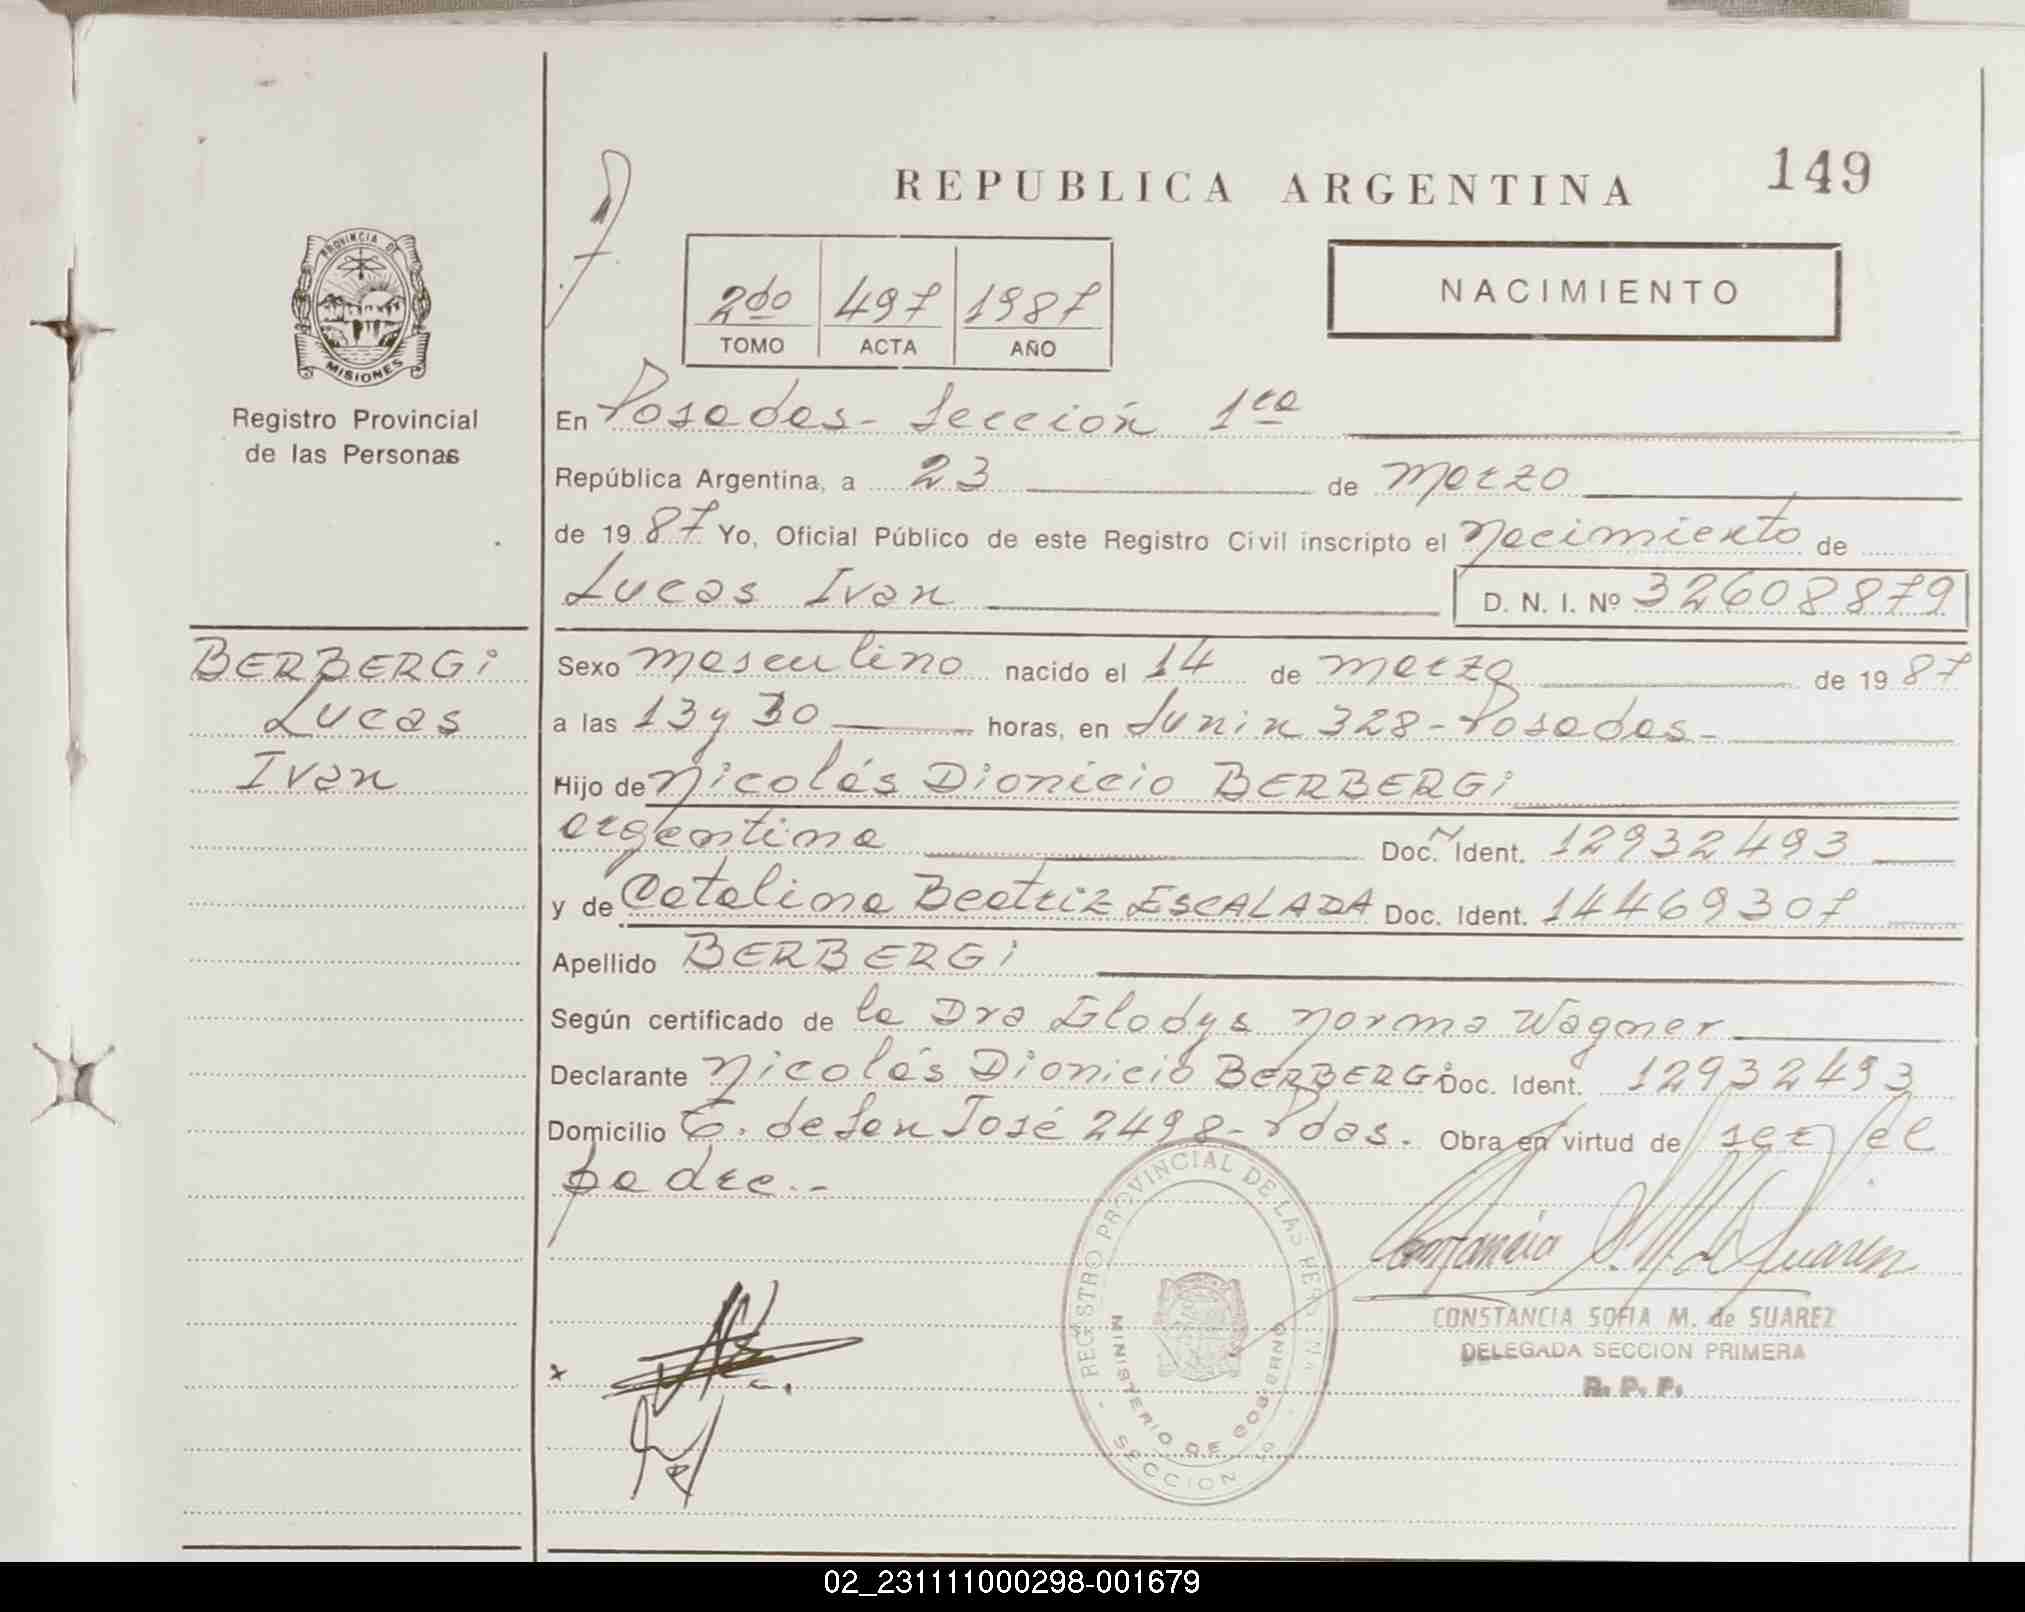 REPUBLICA ARGENTINA
149
NACIMIENTO
2do 497 1987
TOMO ACTA AÑO
PROVINCIA DE
MISIONES
Registro Provincial
de las Personas
En Posadas - Sección 1ra
República Argentina, a 23 de marzo
de 1987 Yo, Oficial Público de este Registro Civil inscripto el Nacimiento de
Lucas Ivan D. N. I. Nº 32608879
BERBERGi
Lucas
Ivan
Sexo masculino nacido el 14 de marzo de 1987
a las 13 y 30 horas, en Junin 328 - Posadas -
Hijo de Nicolás Dionicio BERBERGi
argentina Doc. Ident. 12932493
y de Catalina Beatriz ESCALADA Doc. Ident. 14469307
Apellido BERBERGi
Según certificado de la Dra Gladys Norma Wagner
Declarante Nicolás Dionicio BERBERGi Doc. Ident. 12932493
Domicilio C. de San José 2498 - Pdas. Obra en virtud de ser el
padre.-
REGISTRO PROVINCIAL DE LAS PERSONAS
MINISTERIO DE GOBIERNO
SECCION 1ª
Constancia S. M. de Suarez
CONSTANCIA SOFIA M. de SUAREZ
DELEGADA SECCION PRIMERA
R. P. P.
02_231111000298-001679